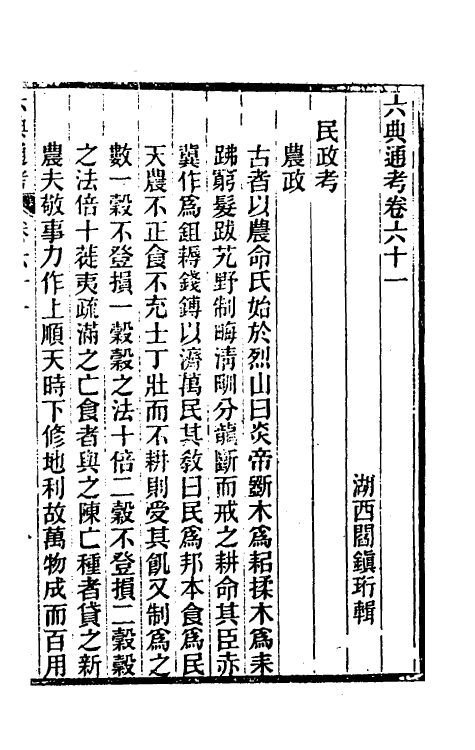 六典通考卷六十一
湖西閻鎮珩輯
民政考
農政
古者以農命氏始於烈山曰炎帝斲木爲耜揉木爲耒
跣窮髮跋艽野制畮淸甽分龍斷而戒之耕命其臣赤
冀作爲鉏耨錢鎛以濟萬民其敎曰民爲邦本食爲民
天農不正食不充士丁壯而不耕則受其飢又制爲之
數一穀不登損一穀穀之法十倍二穀不登損二穀穀
之法倍十蓰夷疏滿之亡食者與之陳亡種者貸之新
農夫敬事力作上順天時下修地利故萬物成而百用
六典通考
卷六十一